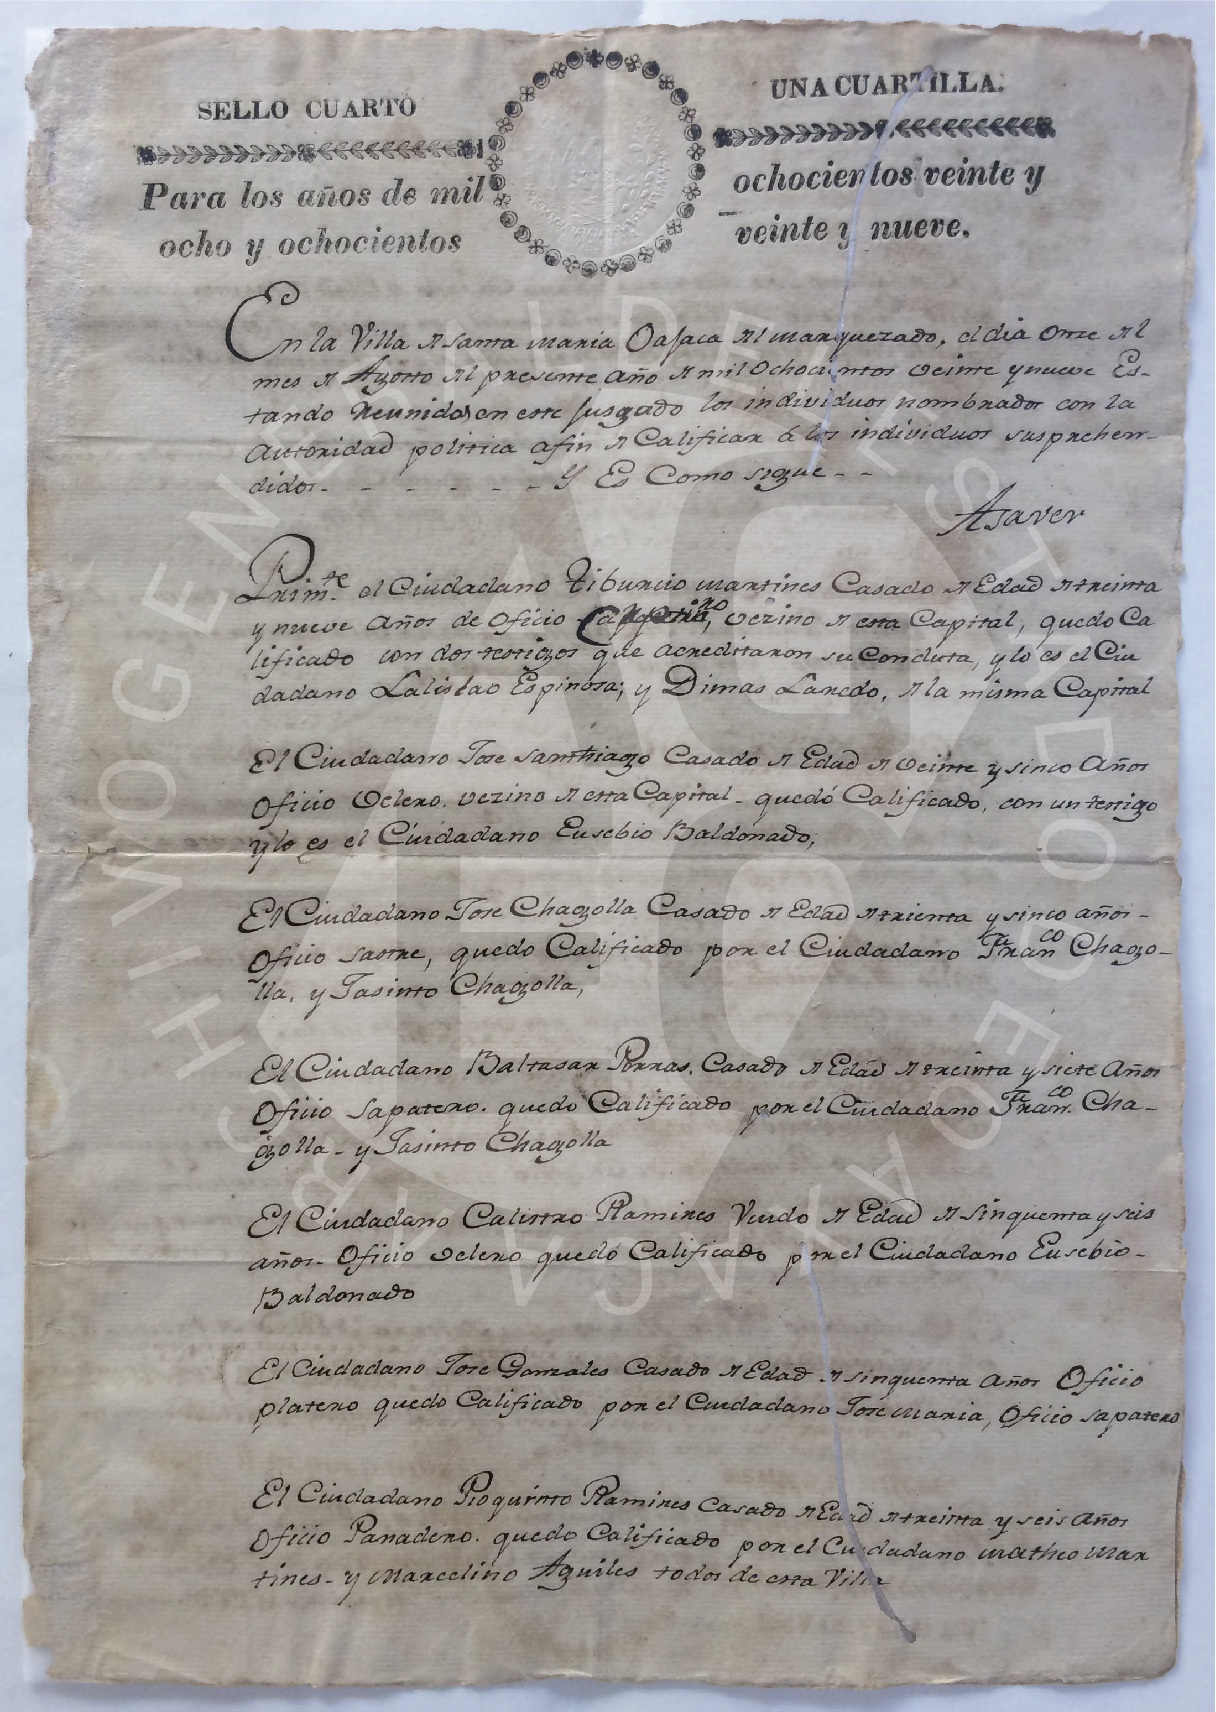 SELLO CUARTO
UNA CUARTILLA.
Para los años de mil
ochocientos veinte y
ocho y ochocientos
veinte y nueve.
En la Villa de Santa Maria Oajaca del Marquezado, el dia Onze del
mes de Agosto del presente año de mil Ochocientos veinte y nueve Es-
tando Reunidos en este Jusgado los individuos nombrados con la
Autoridad politica afin de Calificar á los individuos susprehen-
didos. - - - - - - Y Es Como sigue - -
Asaver
Prim.te el Ciudadano Tiburcio Martines Casado de Edad de treinta
y nueve Años de Oficio vezino de esta Capital, quedo Ca
lificado con dos testigos que acreditaron su Conduta, y lo es el Ciu
dadano Lalislao Espinosa; y Dimas Laredo, de la misma Capital
El Ciudadano Jose Santhiago Casado de Edad de veinte y sinco Años
Oficio Velero. vezino de esta Capital - quedó Calificado, con un testigo
y lo es el Ciudadano Eusebio Baldonado,
El Ciudadano Jose Chagolla Casado de Edad de trienta y sinco años -
Oficio sastre, quedo Calificado por el Ciudadano Fran.co Chago-
lla, y Jasinto Chagolla,
El Ciudadano Baltasar Porras. Casado de Edad de treinta y siete Años
Oficio Sapatero. quedó Calificado por el Ciudadano Fran.co Cha-
golla - y Jasinto Chagolla
El Ciudadano Calistro Ramires Viudo de Edad de Sinquenta y seis
años - Oficio velero quedó Calificado por el Ciudadano Eusebio -
Baldonado
El Ciudadano Jose Gonzales Casado de Edad de sinquenta Años Oficio
platero quedo Calificado por el Ciudadano Jose Maria, Oficio sapatero
El Ciudadano Pioquinto Ramires Casado de Edad de treinta y seis Años
Oficio Panadero. quedo Calificado por el Ciudadano Matheo Mar
tines - y Marcelino Aquiles todos de esta Villa
ARCHIVO GENERAL DEL ESTADO DE OAXACA